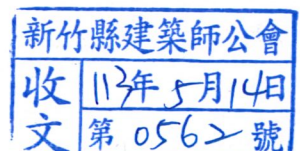 新竹縣建築師公會
收文
113年5月14日
第0562號